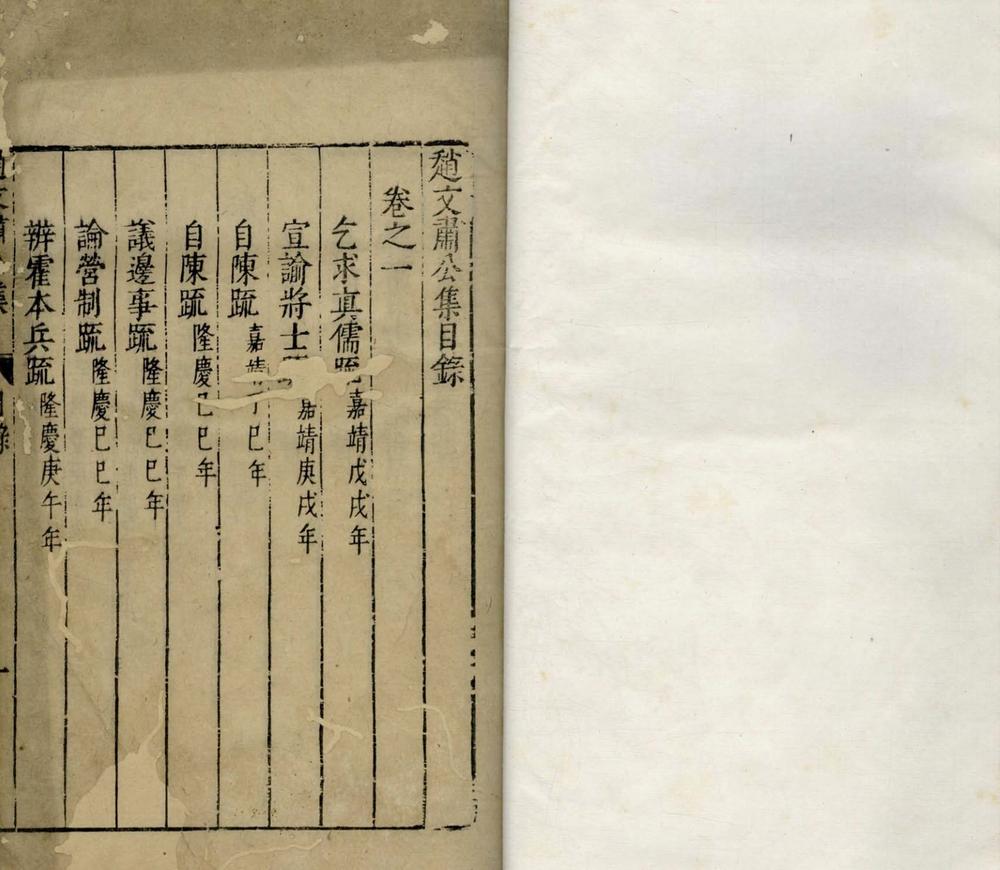 趙文肅公集目錄
卷之一
乞求真儒疏嘉靖戊戌年
宣諭將士嘉靖庚戌年
自陳疏嘉靖丁巳年
自陳疏隆慶己巳年
議邊事疏隆慶己巳年
論營制疏隆慶己巳年
辨霍本兵疏隆慶庚午年